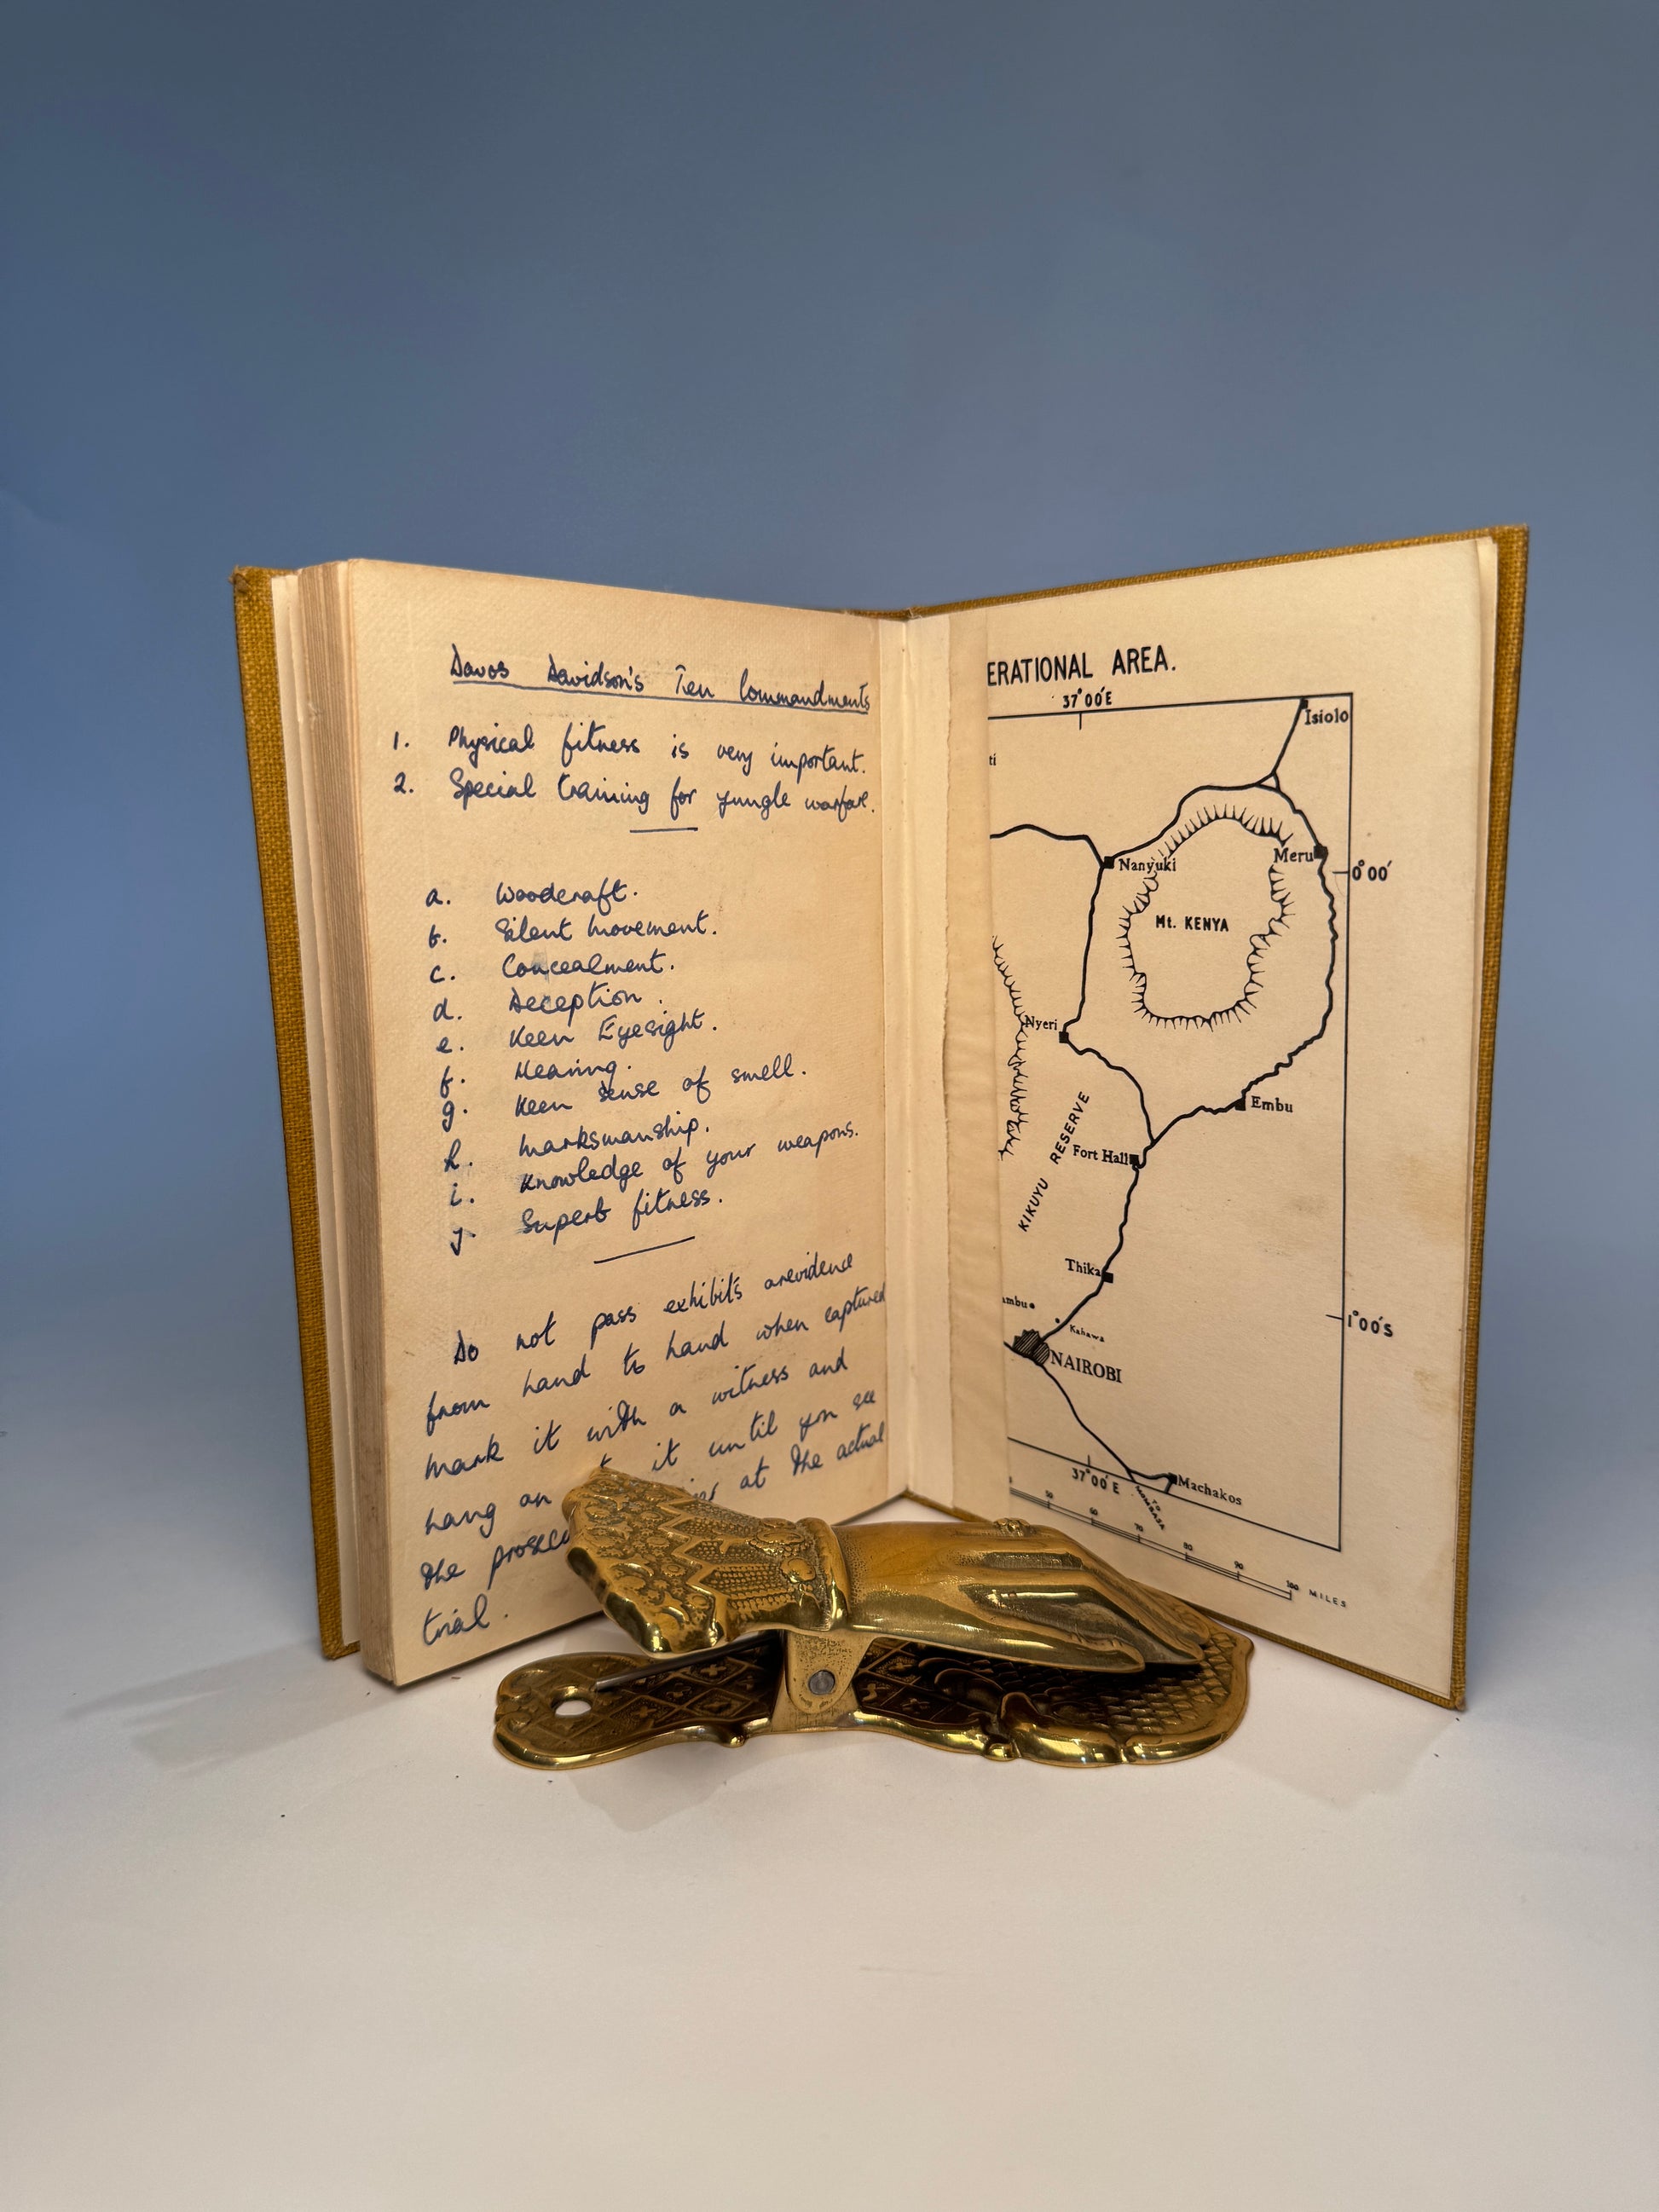 Davos Davidson's Ten Commandments
1. Physical fitness is very important.
2. Special training for yungle warfare.
a. Woodcraft.
b. Silent movement.
c. Concealment.
d. Deception.
e. Keen Eyesight.
f. Hearing.
g. Keen sense of smell.
h. Marksmanship.
i. Knowledge of your weapons.
j. Superb fitness.
Do not pass exhibits or evidence
from hand to hand when captured
mark it with a witness and
hang on it until you see
the at the actual
trial.
ERATIONAL AREA.
37°00'E
Isiolo
ti
Nanyuki
Meru
0°00'
Mt. KENYA
Nyeri
Embu
KIKUYU RESERVE
Fort Hall
Thika
ambu
Kahawa
1°00'S
NAIROBI
37°00'E
Machakos
TO MOMBASA
50 60 70 80 90 100 MILES